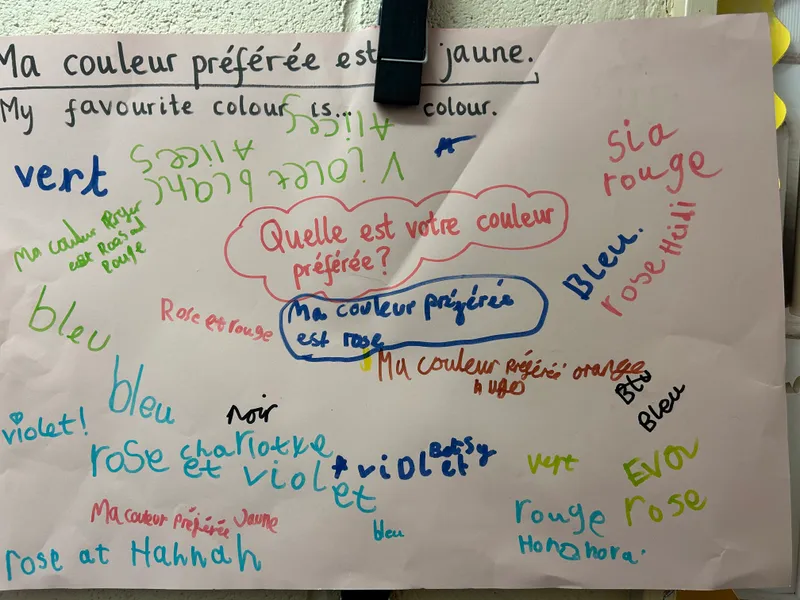 Ma couleur préférée est jaune.
My favourite colour is... colour.
Alices
vert
Violet blanc Alices
sia
rouge
Quelle est votre couleur
préférée?
Bleu.
rose Heidi
Ma couleur
est
rouge
bleu
Rose et rouge
Ma couleur préférée
est rose
Ma couleur préféré orange
bleu
noir
Bleu
violet!
rose charlotte
et violet
violet
Betsy
vert
rose
Ma couleur préférée Jaune
bleu
rouge
rose at Hannah